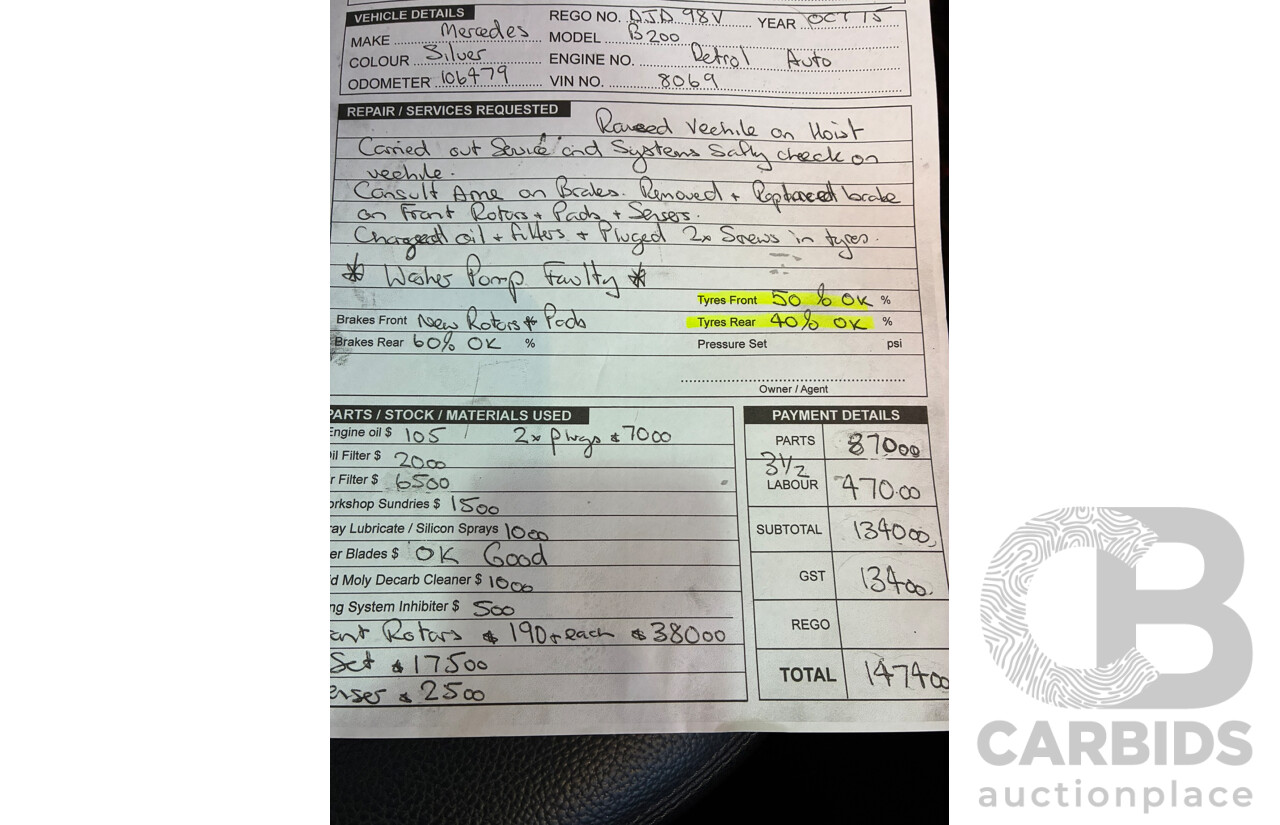 VEHICLE DETAILS REGO NO. DJD 98V YEAR OCT 15
MAKE Mercedes MODEL B200
COLOUR Silver ENGINE NO. Petrol Auto
ODOMETER 106479 VIN NO. 8069
REPAIR / SERVICES REQUESTED
Raised Veehile on Hoist
Carried out Service and Systems Safty check on
veehile.
Consult Ame on Brakes. Removed + Replaced brake
on Front Rotors + Pads + Sensers.
Changed oil + filters + Pluged 2x Screws in tyres.
* Washer Pomp Faulty *
Tyres Front 50% OK %
Brakes Front New Rotors + Pads Tyres Rear 40% OK %
Brakes Rear 60% OK % Pressure Set psi
Owner / Agent
PARTS / STOCK / MATERIALS USED
Engine oil $ 105 2x plugs $7000
il Filter $ 2000
r Filter $ 6500
orkshop Sundries $ 1500
ay Lubricate / Silicon Sprays 1000
er Blades $ OK Good
d Moly Decarb Cleaner $ 1000
ng System Inhibiter $ 500
ont Rotars $ 190+each $38000
Set $ 17500
enser $ 2500
PAYMENT DETAILS
PARTS 87000
3 1/2
LABOUR 470.00
SUBTOTAL 134000
GST 13400
REGO
TOTAL 147400
CARBIDS
auctionplace